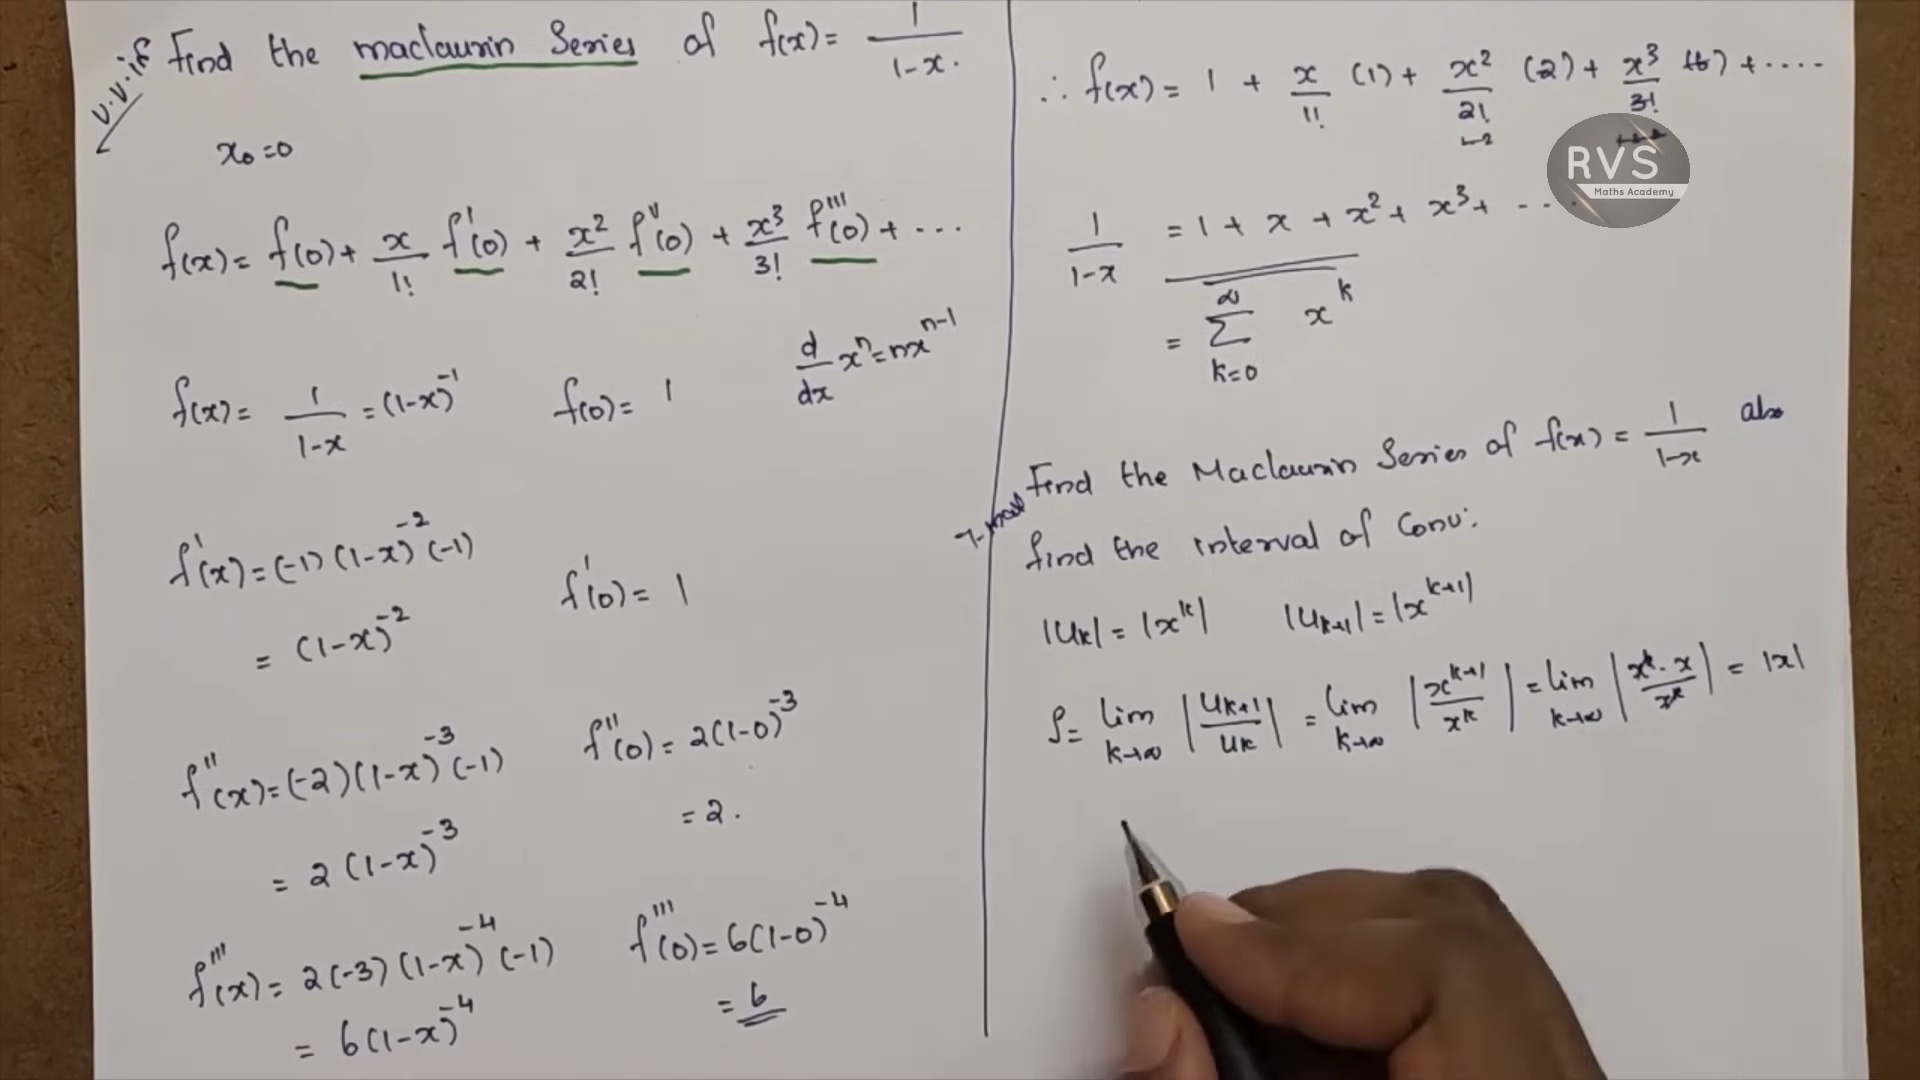 V.V.if
Find the maclaurin Series of f(x) = 1/(1-x).
x₀=0
f(x) = f(0) + x/1! f'(0) + x²/2! f''(0) + x³/3! f'''(0) + ...
d/dx xⁿ = nxⁿ⁻¹
f(x) = 1/(1-x) = (1-x)⁻¹ f(0) = 1
f'(x) = (-1)(1-x)⁻²(-1)
= (1-x)⁻² f'(0) = 1
f''(x) = (-2)(1-x)⁻³(-1) f''(0) = 2(1-0)⁻³
= 2(1-x)⁻³ = 2.
f'''(x) = 2(-3)(1-x)⁻⁴(-1) f'''(0) = 6(1-0)⁻⁴
= 6(1-x)⁻⁴ = 6
∴ f(x) = 1 + x/1! (1) + x²/2! (2) + x³/3! (6) + ....
1·2
RVS
Maths Academy
1/(1-x) = 1 + x + x² + x³ + ...
= ∑_{k=0}^{∞} x^k
Find the Maclaurin Series of f(x) = 1/(1-x) also
find the interval of Conv:
|u_k| = |x^k| |u_{k+1}| = |x^{k+1}|
ρ = lim_{k→∞} |u_{k+1}/u_k| = lim_{k→∞} |x^{k+1}/x^k| = lim_{k→∞} |x^k·x/x^k| = |x|